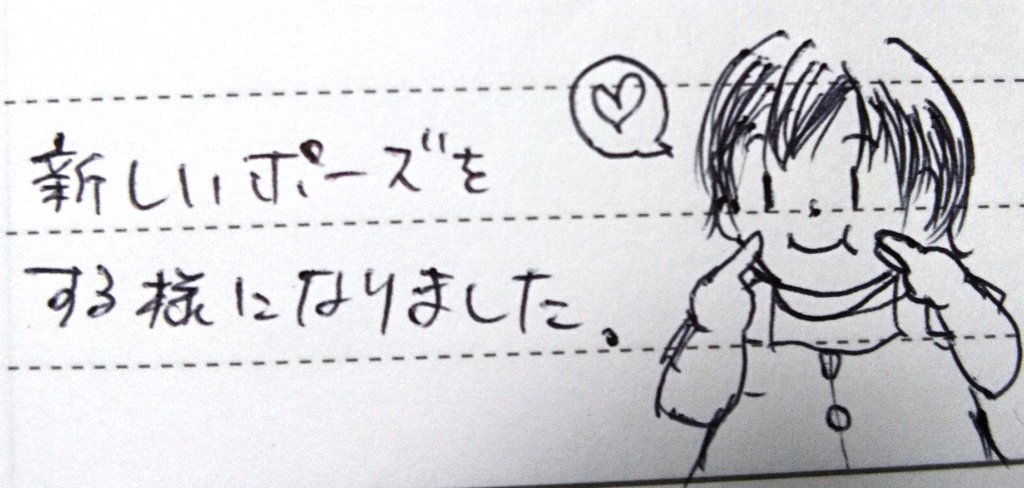 新しいポーズを
する様になりました。